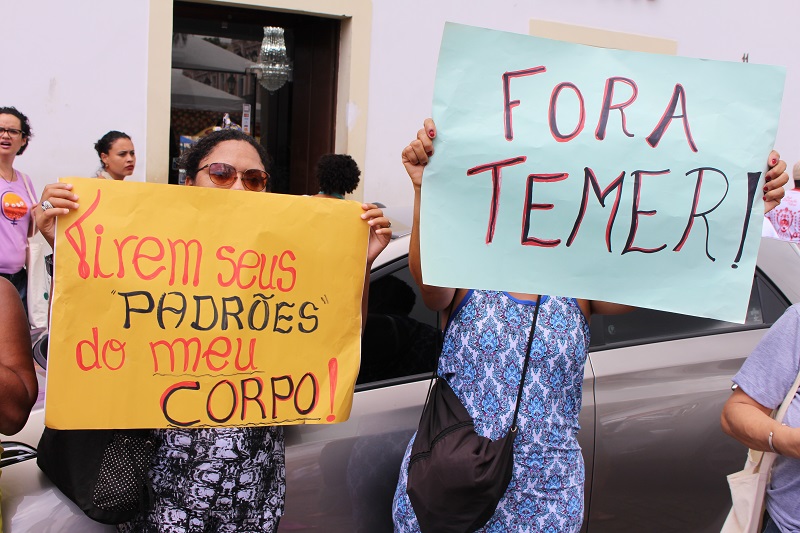 Tirem seus
"PADRÕES"
do meu
CORPO!
FORA
TEMER!